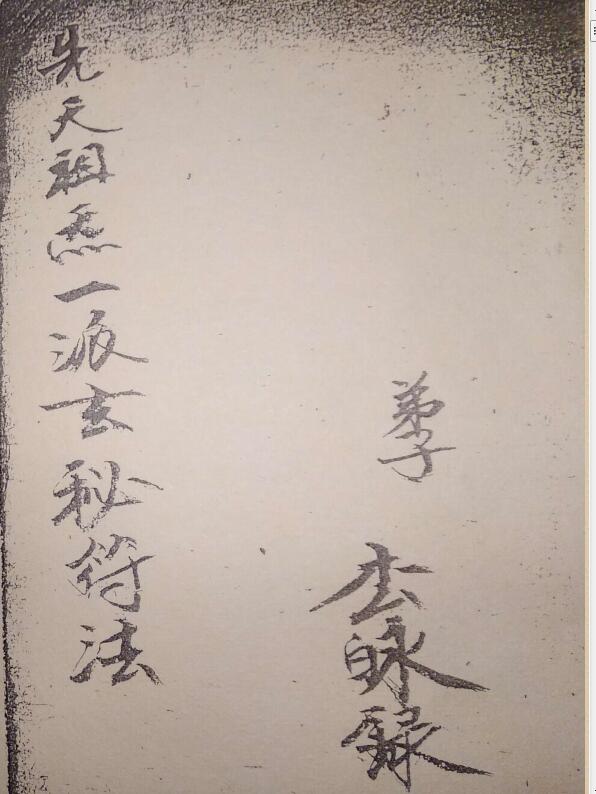 弟子 録
先天祖炁一派玄秘符法